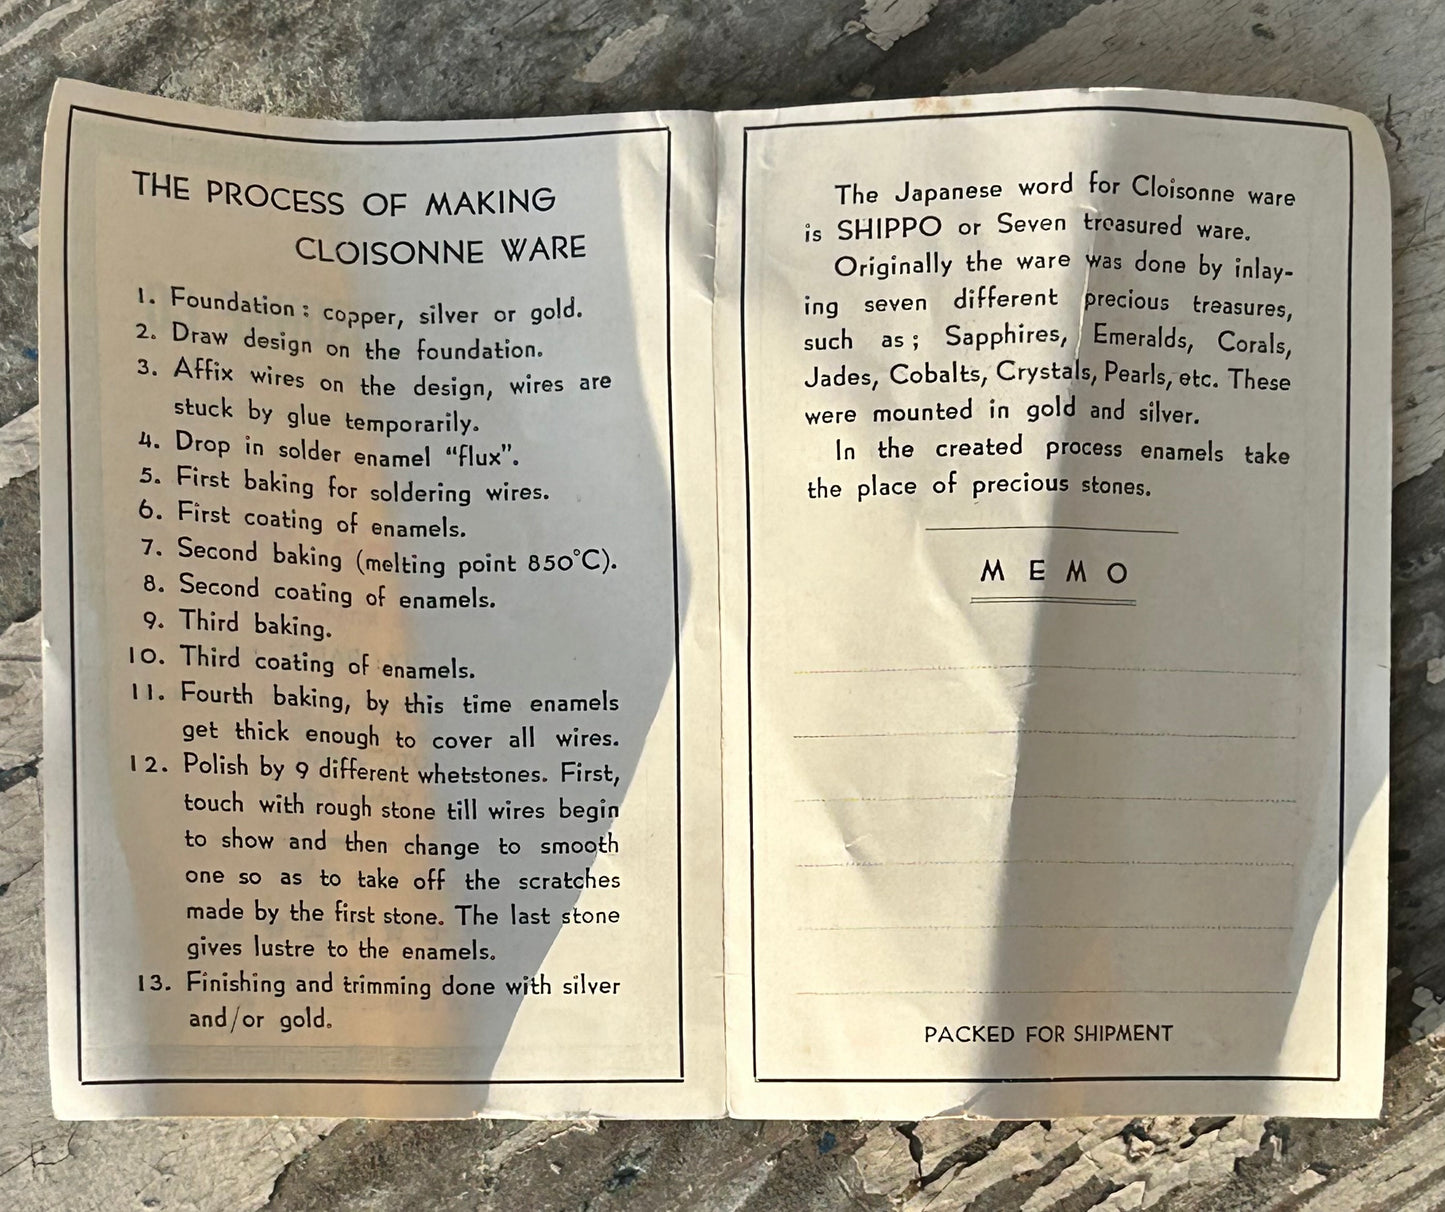 THE PROCESS OF MAKING
CLOISONNE WARE
1. Foundation: copper, silver or gold.
2. Draw design on the foundation.
3. Affix wires on the design, wires are
stuck by glue temporarily.
4. Drop in solder enamel "flux".
5. First baking for soldering wires.
6. First coating of enamels.
7. Second baking (melting point 850°C).
8. Second coating of enamels.
9. Third baking.
10. Third coating of enamels.
11. Fourth baking, by this time enamels
get thick enough to cover all wires.
12. Polish by 9 different whetstones. First,
touch with rough stone till wires begin
to show and then change to smooth
one so as to take off the scratches
made by the first stone. The last stone
gives lustre to the enamels.
13. Finishing and trimming done with silver
and/or gold.
The Japanese word for Cloisonne ware
is SHIPPO or Seven treasured ware.
Originally the ware was done by inlay-
ing seven different precious treasures,
such as; Sapphires, Emeralds, Corals,
Jades, Cobalts, Crystals, Pearls, etc. These
were mounted in gold and silver.
In the created process enamels take
the place of precious stones.
MEMO
PACKED FOR SHIPMENT